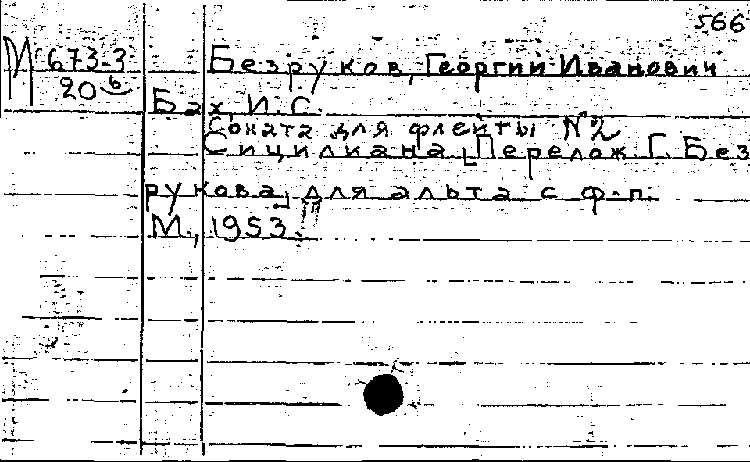 566
М 673-3
20 в
Безруков, Георгий Иванович
Бах, И. С.
Соната для флейты №2
Сицилиана [Перелож. Г. Без
рукова] для альта с ф-п.
М., 1953.